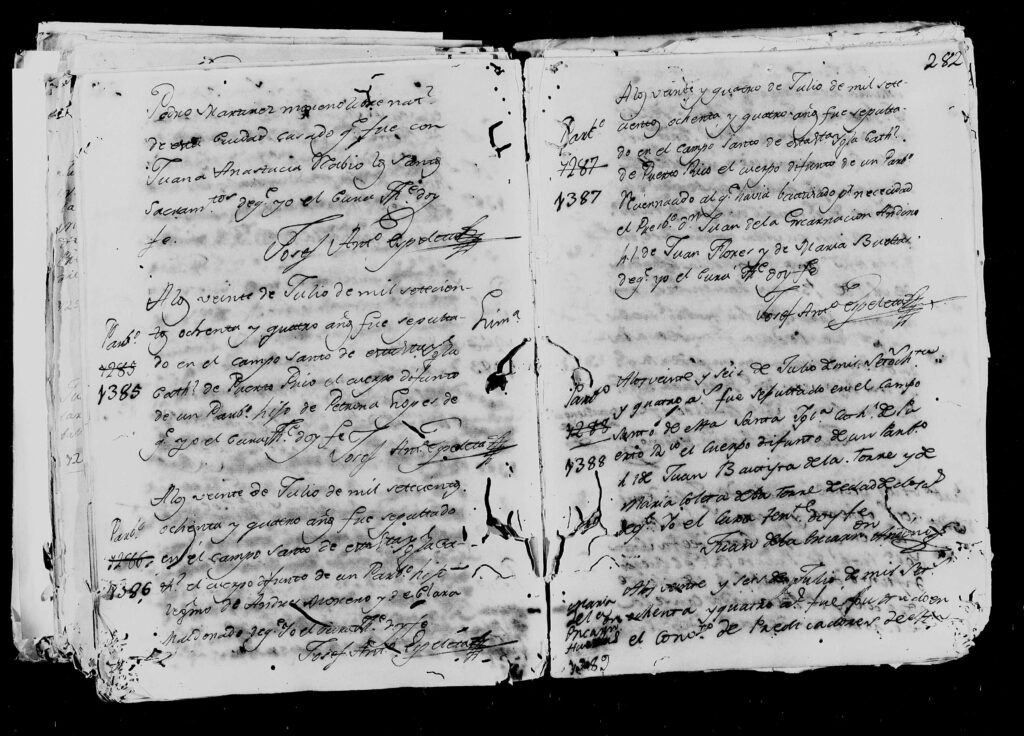 Pedro Martinez moreno libre nat.l
de esta Ciudad casado q.e fue con
Juana Anastacia Rubio los santos
Sacram.tos deq.e yo el Cura Th.e doy
fe.
Josef Ant.o Espeleta
Alos veinte de Julio de mil setecien-
Parb.o
tos ochenta y quatro años fue sepulta-
1285
do en el campo santo de esta sta Ygla
1385
Cath.l de Puerto Rico el cuerpo difunto
de un Parb.o hijo de Petrona Lopes de
q.e yo el Cura Th.e doy fee
Josef Ant.o Espeleta
Alos veinte de Julio de mil setecientos
Parb.o
ochenta y quatro años fue sepultado
1286
en el campo santo de esta sta Yglacia
1386
th.l el cuerpo difunto de un Parb.o hijo
legmo de Andres Moreno y de Clara
Maldonado deq.e Yo el Cura Th.e doy fe
Josef Ant.o Espeleta
282
Alos veinte y quatro de Julio de mil sete-
cientos ochenta y quatro años fue sepulta-
Parb.o
do en el campo santo de esta sta Ygla Cath.l
1287
de Puerto Rico el cuerpo difunto de un Parb.o
1387
al q.e havia bautizado p.r necesidad
el Presb.o d.n Juan dela Encarnacion Andino
h.l de Juan Flores y de Maria
deq.e yo el Cura Th.e doy fe
Josef Ant.o Espeleta
Alos veinte y seis de Julio de mil
Parbo
y quatro a.s fue sepultado en el campo
1288
santo de esta Santa Igl.a Cath.l de Pu
1388
erto Rico el cuerpo difunto de un Parb.o
h.l de Juan Bautista dela Torre y de
Maria dela Torre
deq.e Yo el Cura Ten.te doy fe
Juan dela Encarn.on Andino
Alos veinte y seis de Julio de mil
Maria
ochenta y quatro a.s fue sepultado en
el Conv.to de Predicadores de
1389